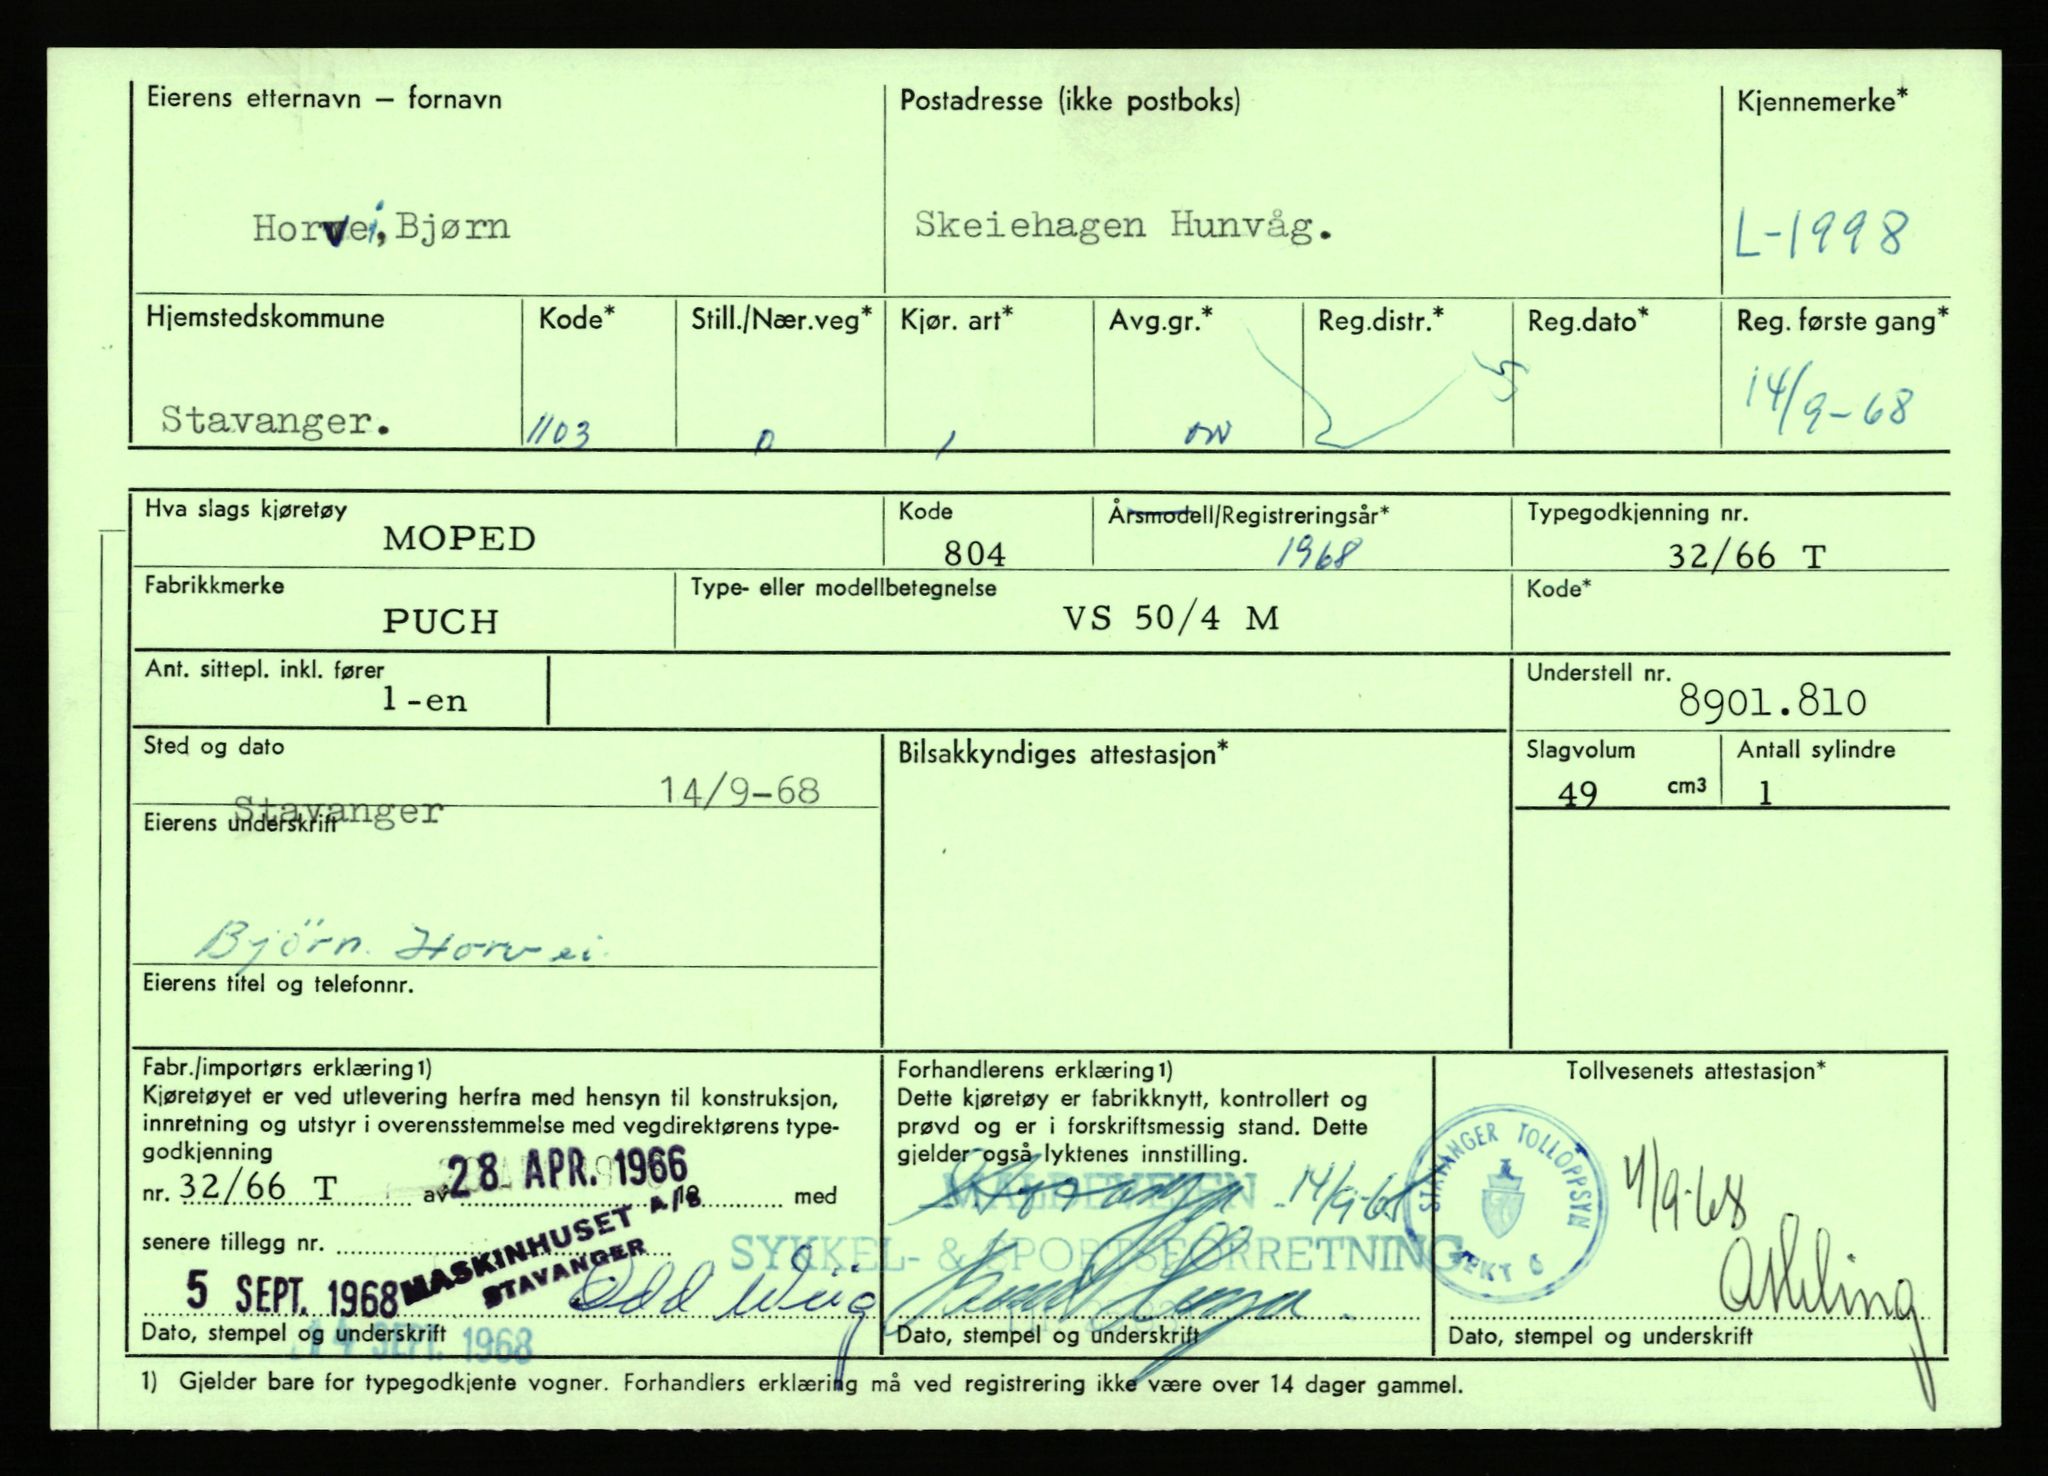 Eierens etternavn – fornavn
Horvei, Bjørn
Postadresse (ikke postboks)
Skeiehagen Hunvåg.
Kjennemerke*
L-1998
Hjemstedskommune
Stavanger.
Kode*
1103
Still./Nær.veg*
0
Kjør. art*
1
Avg.gr.*
Reg.distr.*
Reg.dato*
Reg. første gang*
14/9-68
Hva slags kjøretøy
MOPED
Kode
804
Årsmodell/Registreringsår*
1968
Typegodkjenning nr.
32/66 T
Fabrikkmerke
PUCH
Type- eller modellbetegnelse
VS 50/4 M
Kode*
Ant. sittepl. inkl. fører
1-en
Understell nr.
8901.810
Sted og dato
Stavanger 14/9-68
Bilsakkyndiges attestasjon*
Slagvolum
49 cm3
Antall sylindre
1
Eierens underskrift
Björn Horvei
Eierens titel og telefonnr.
Fabr./importørs erklæring1)
Kjøretøyet er ved utlevering herfra med hensyn til konstruksjon,
innretning og utstyr i overensstemmelse med vegdirektørens type-
godkjenning
nr. 32/66 T av 28 APR. 1966 med
senere tillegg nr.
MASKINHUSET A/S
STAVANGER
5 SEPT. 1968
Odd Wiig
Dato, stempel og underskrift
14 SEPT. 1968
Forhandlerens erklæring1)
Dette kjøretøy er fabrikknytt, kontrollert og
prøvd og er i forskriftsmessig stand. Dette
gjelder også lyktenes innstilling.
Stavanger 14/9-68
SYKKEL- & SPORTSFORRETNING
Dato, stempel og underskrift
Tollvesenets attestasjon*
STAVANGER TOLLOPPSYN
Dato, stempel og underskrift
1) Gjelder bare for typegodkjente vogner. Forhandlers erklæring må ved registrering ikke være over 14 dager gammel.